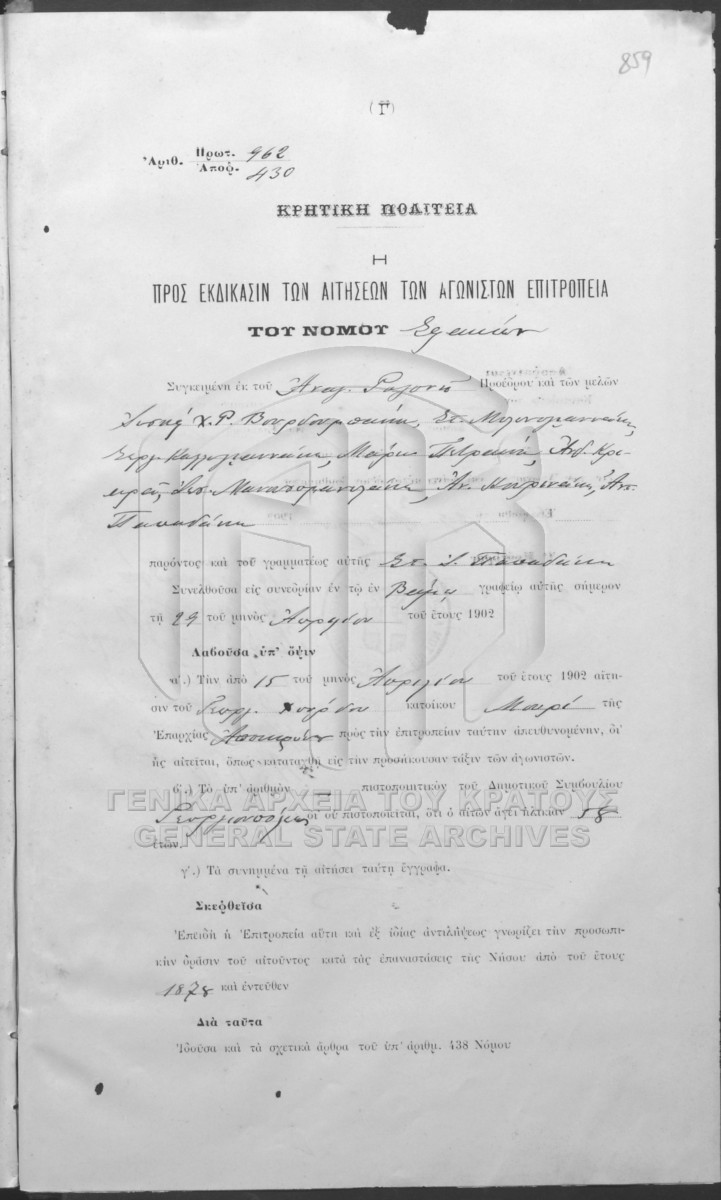 859
(Γ)
Ἀριθ. Πρωτ. 962
Ἀποφ. 430
ΚΡΗΤΙΚΗ ΠΟΛΙΤΕΙΑ
Η
ΠΡΟΣ ΕΚΔΙΚΑΣΙΝ ΤΩΝ ΑΙΤΗΣΕΩΝ ΤΩΝ ΑΓΩΝΙΣΤΩΝ ΕΠΙΤΡΟΠΕΙΑ
ΤΟΥ ΝΟΜΟΥ Σφακιών
Συγκειμένη ἐκ τοῦ Ἀναγ. Προέδρου καὶ τῶν μελῶν
Ἰωσήφ χ. Ρ. Βουρδουμπάκη, Στ.
Μάρκ. Πετράκη, Ἀνδ.
Ἀντ.
Παπαδάκη
παρόντος καὶ τοῦ γραμματέως αὐτῆς Στ. Ι. Παπαδάκη
Συνελθοῦσα εἰς συνεδρίαν ἐν τῷ ἐν Βάμῳ γραφείῳ αὐτῆς σήμερον
τῇ 29 τοῦ μηνὸς Ἀπριλίου τοῦ ἔτους 1902
Λαβοῦσα ὑπ' ὄψιν
α΄.) Τὴν ἀπὸ 15 τοῦ μηνὸς Ἀπριλίου τοῦ ἔτους 1902 αἴτη-
σιν τοῦ Γεωργ. κατοίκου Μουρί τῆς
Ἐπαρχίας Ἀποκορώνου πρὸς τὴν ἐπιτροπείαν ταύτην ἀπευθυνομένην, δι'
ἧς αἰτεῖται, ὅπως καταταχθῇ εἰς τὴν προσήκουσαν τάξιν τῶν ἀγωνιστῶν.
β΄.) Τὸ ὑπ' ἀριθμὸν πιστοποιητικὸν τοῦ Δημοτικοῦ Συμβουλίου
Γεωργιουπόλεως δι' οὗ πιστοποιεῖται, ὅτι ὁ αἰτῶν ἄγει ἡλικίαν 58
ἐτῶν.
γ΄.) Τὰ συνημμένα τῇ αἰτήσει ταύτῃ ἔγγραφα.
Σκεφθεῖσα
Ἐπειδὴ ἡ Ἐπιτροπεία αὕτη καὶ ἐξ ἰδίας ἀντιλήψεως γνωρίζει τὴν προσωπι-
κὴν δρᾶσιν τοῦ αἰτοῦντος κατὰ τὰς ἐπαναστάσεις τῆς Νήσου ἀπὸ τοῦ ἔτους
1878 καὶ ἐντεῦθεν
Διὰ ταῦτα
Ἰδοῦσα καὶ τὰ σχετικὰ ἄρθρα τοῦ ὑπ' ἀριθμ. 438 Νόμου
ΓΕΝΙΚΑ ΑΡΧΕΙΑ ΤΟΥ ΚΡΑΤΟΥΣ
GENERAL STATE ARCHIVES